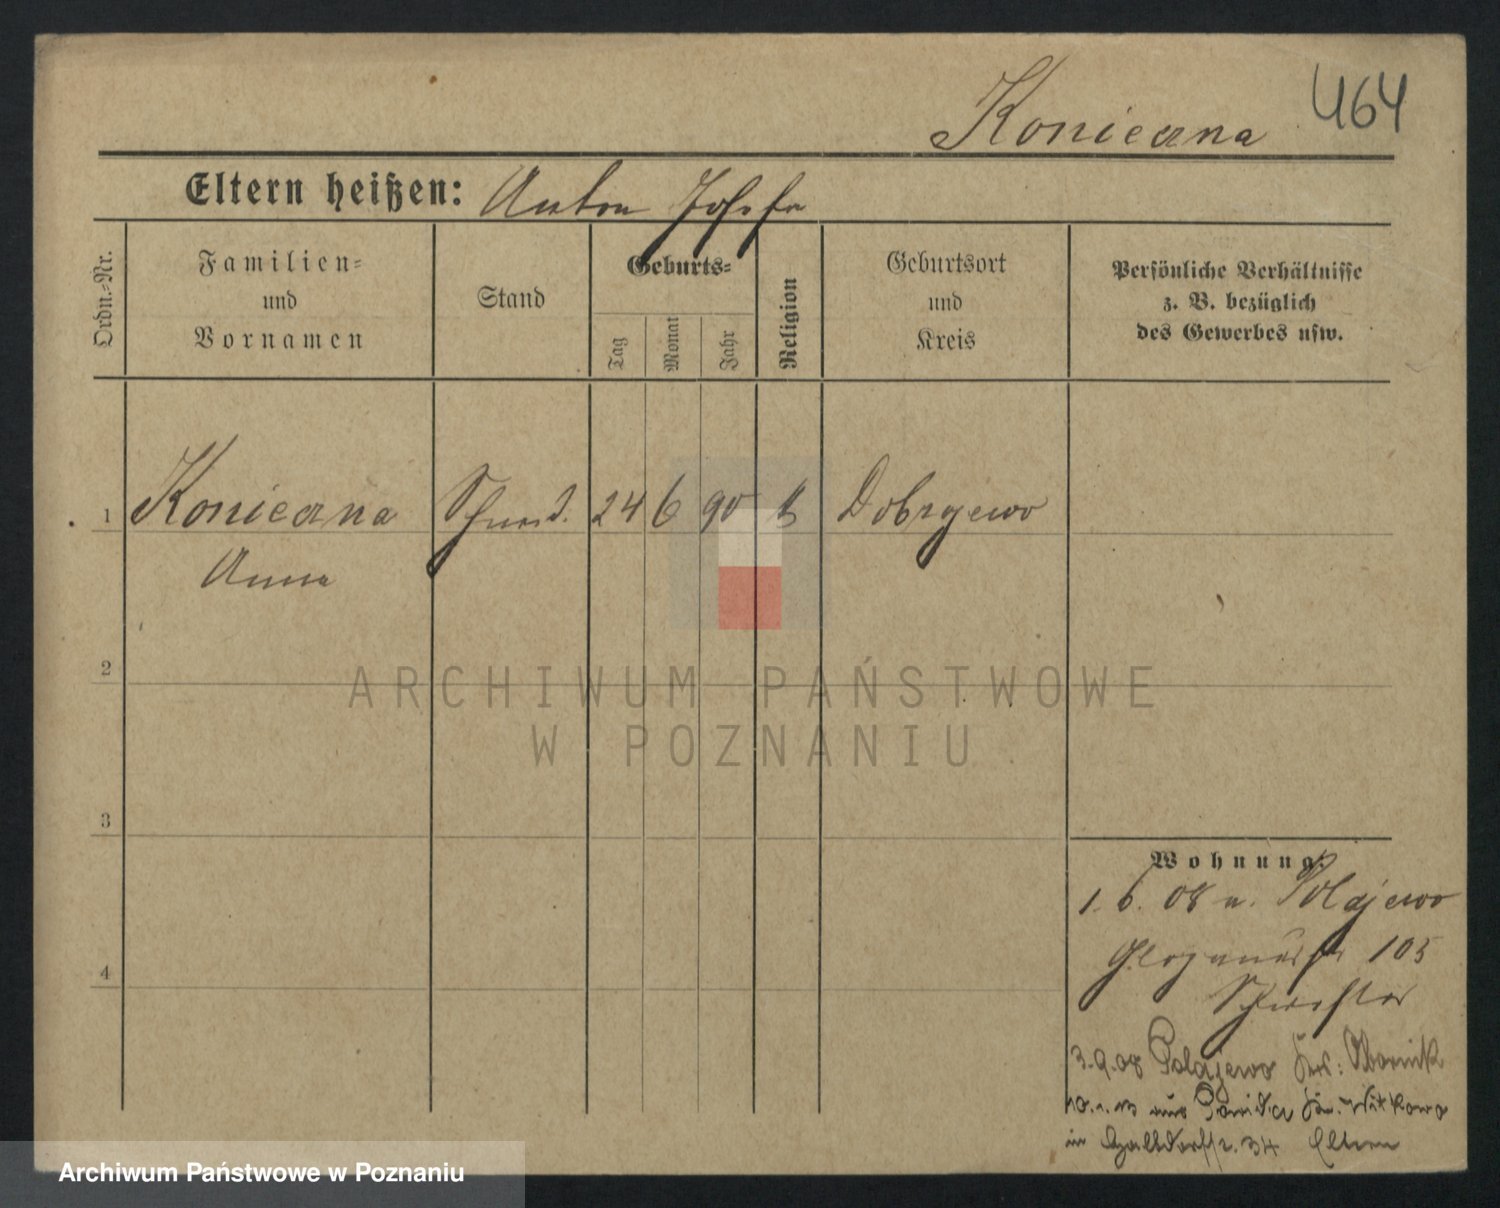 Konieczna 464
Eltern heißen: Anton Josefa
Ordn.-Nr.
Familien-
und
Vornamen
Stand
Geburts-
Tag
Monat
Jahr
Religion
Geburtsort
und
Kreis
Persönliche Verhältnisse
z. B. bezüglich
des Gewerbes usw.
1 Konieczna 24 6 90 Dobrojewo
Anna
2
3
4
Wohnung:
1.6.08 n. Polajewo
Glogauerstr 105
Schwester
3.9.08 Polajewo Krs: Obornik
aus Kr. Witkowo
in 34 Eltern
ARCHIWUM PAŃSTWOWE
W POZNANIU
Archiwum Państwowe w Poznaniu